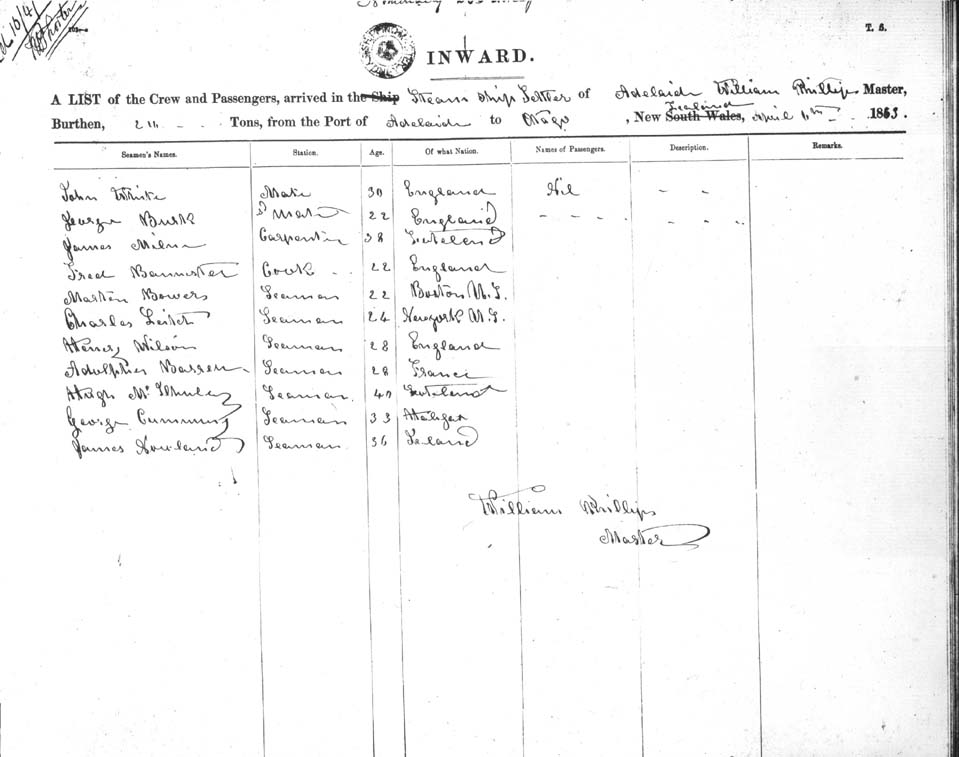 T. 8.
INWARD.
A LIST of the Crew and Passengers, arrived in the Ship Steam Ship Settler of Adelaide William Phillips Master,
Zealand
Burthen, Tons, from the Port of Adelaide to Otago, New South Wales, April 1863.
Seamen's Names. Station. Age. Of what Nation. Names of Passengers. Description. Remarks.
John White Mate 30 England Nil - -
George Burk 2d Mate 22 England - - - - - -
James Milne Carpenter 38 Scotland
Fred Bannister Cook - - 22 England
Martin Bowers Seaman 22 Boston U.S.
Charles Leitch Seaman 24 Newyork U.S.
Henry Wilson Seaman 28 England
Adolphus Seaman 28 France
Hugh Seaman 40 Scotland
George Cumming Seaman 33 Halifax
James Rowland Seaman 36 Ireland
William Phillips
Master